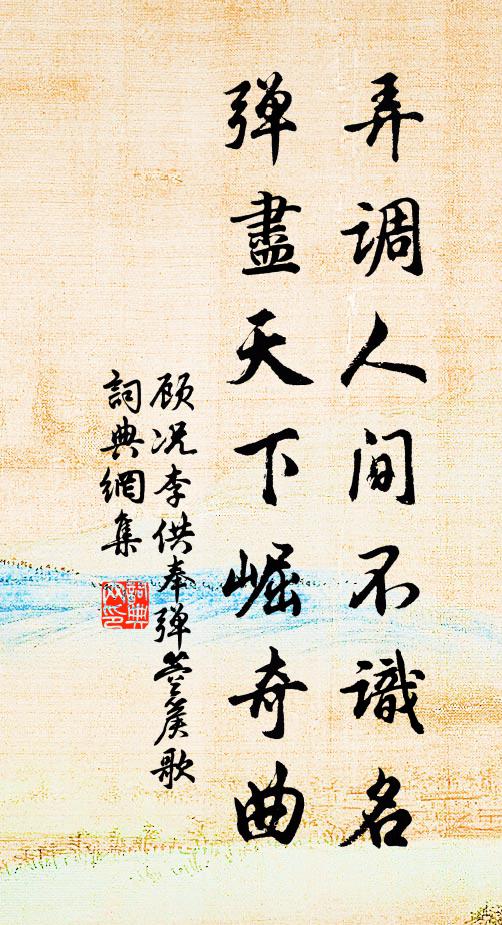 弄调人间不識名
弹盡天下崛奇曲
顾况李供奉弹箜篌歌
詞典網集
詞典文印